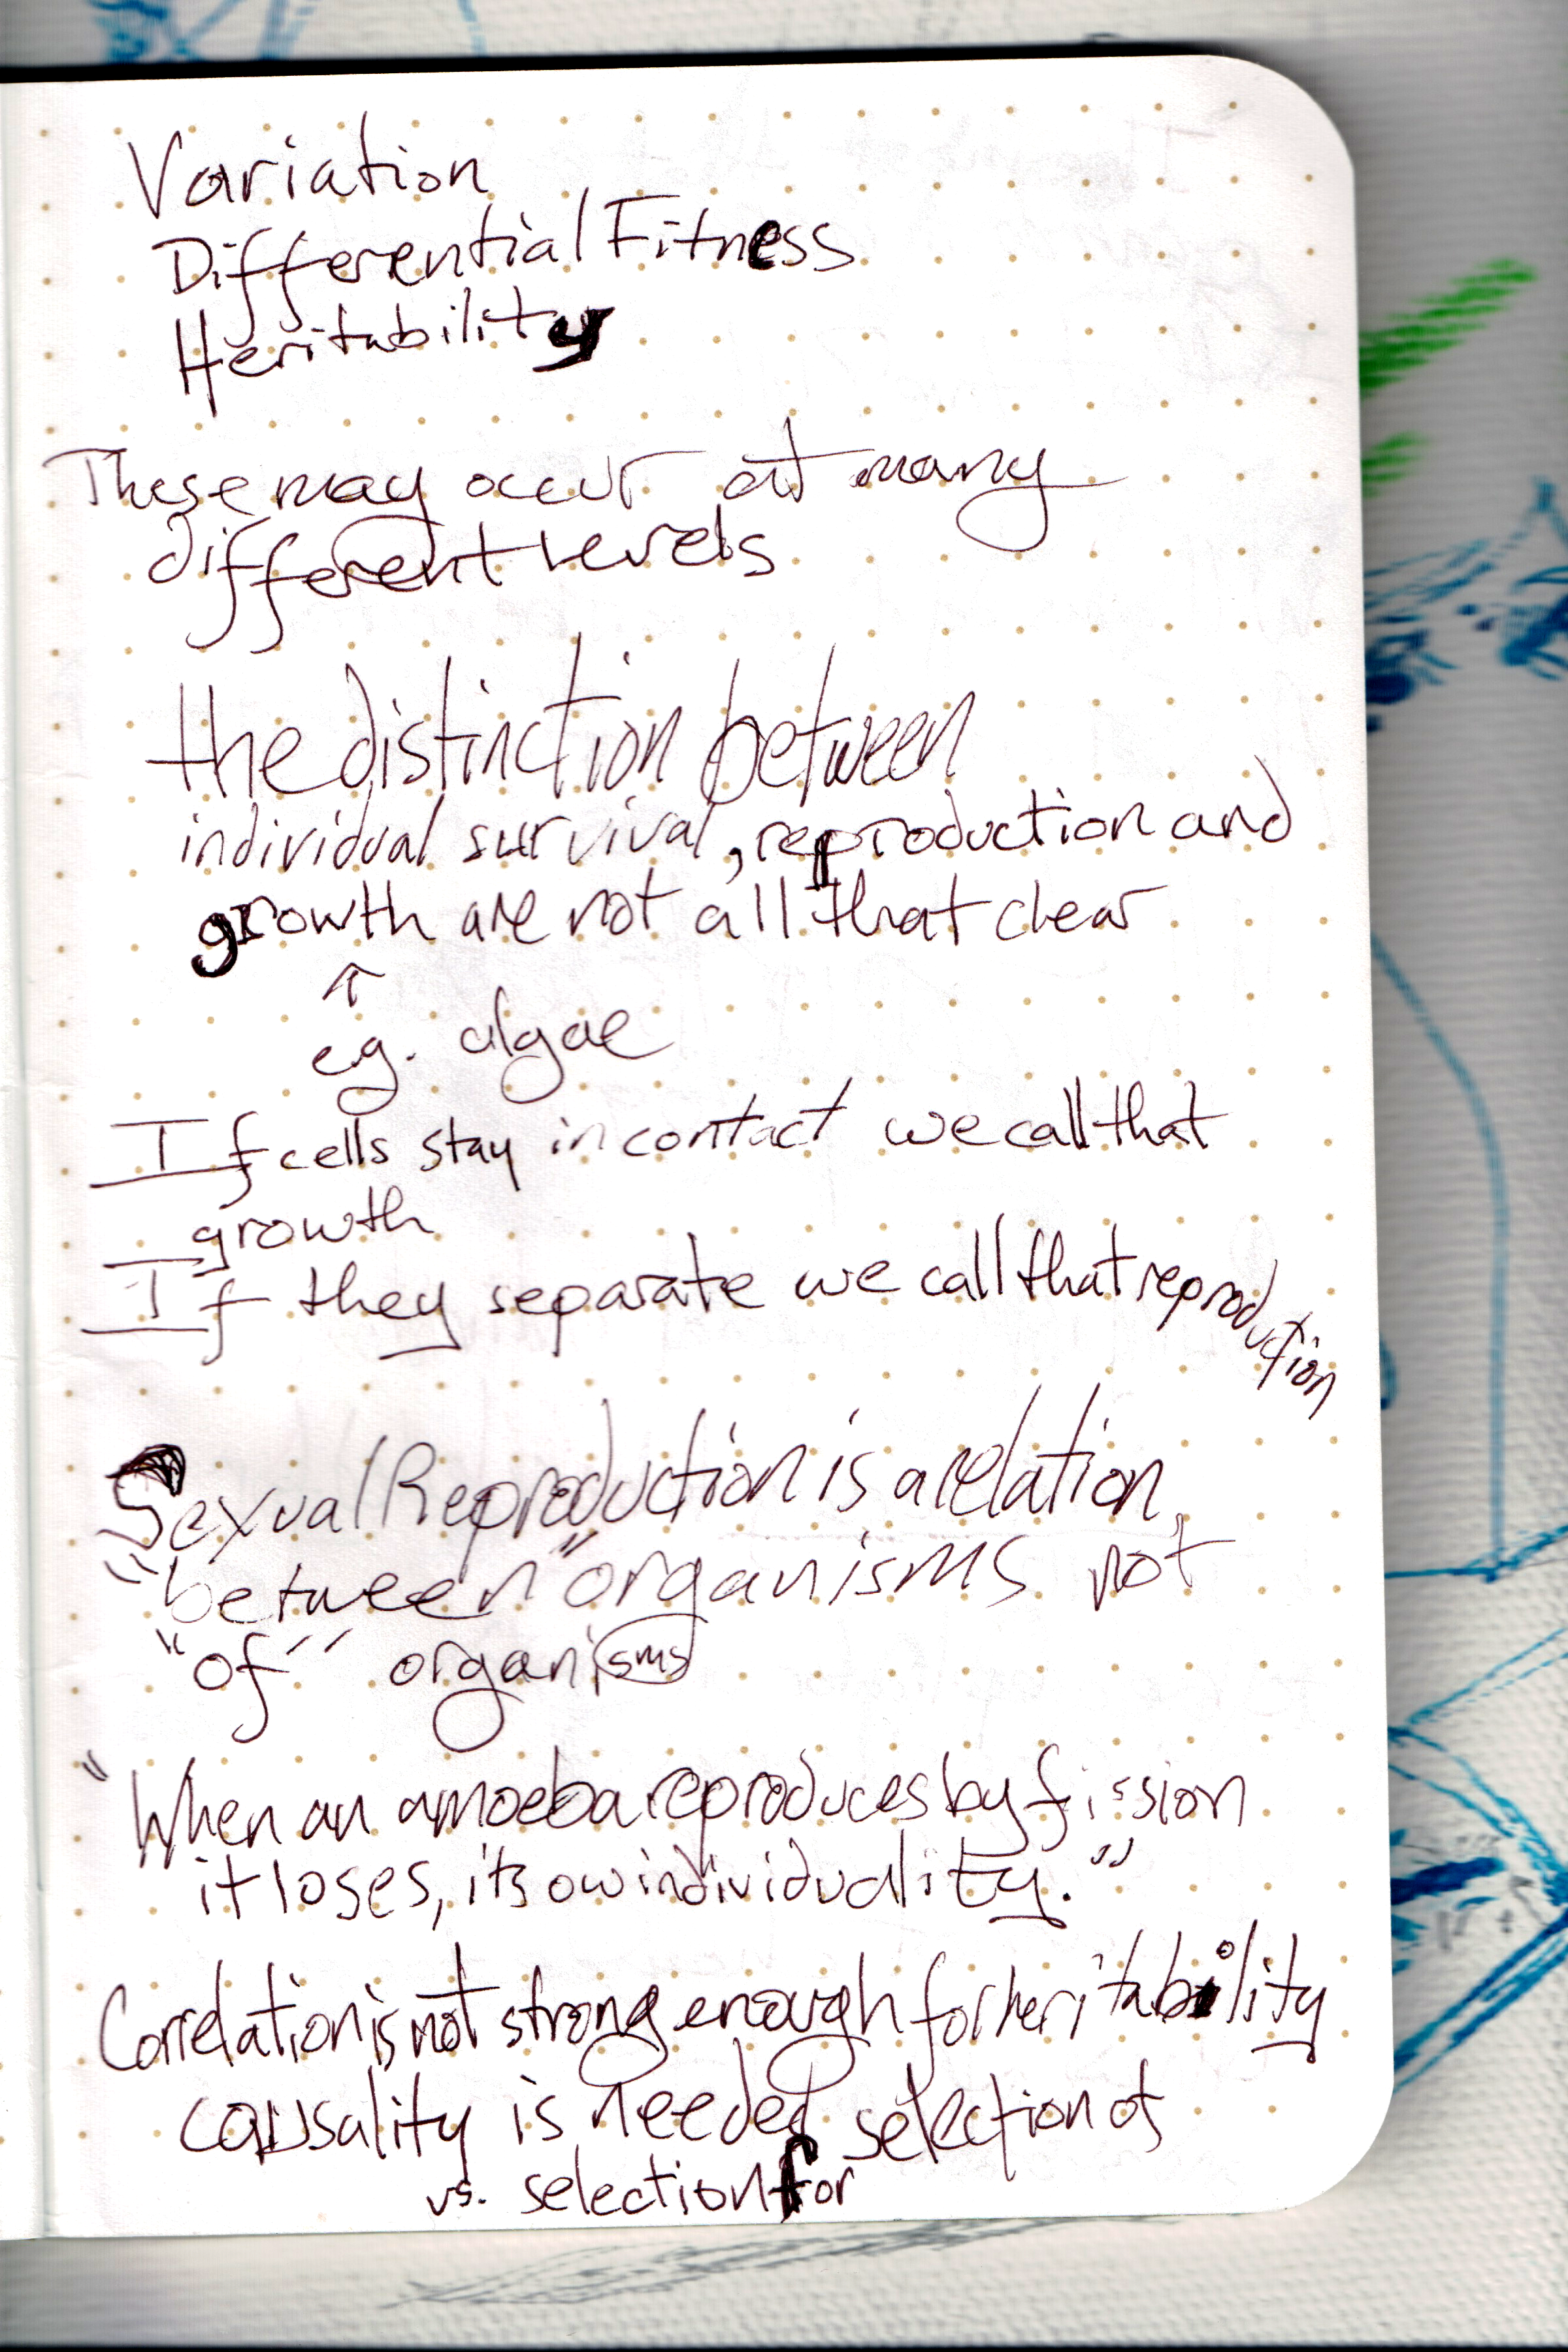 Variation
Differential Fitness
Heritability
These may occur at many
different levels
the distinction between
individual survival, reproduction and
growth are not all that clear
↑
e.g. algae
If cells stay in contact we call that
growth
If they separate we call that reproduction
Sexual Reproduction is a relation
"between" organisms not
"of" organisms
"When an amoeba reproduces by fission
it loses, its ow individuality."
Correlation is not strong enough for heritability
causality is needed selection of
vs. selection for